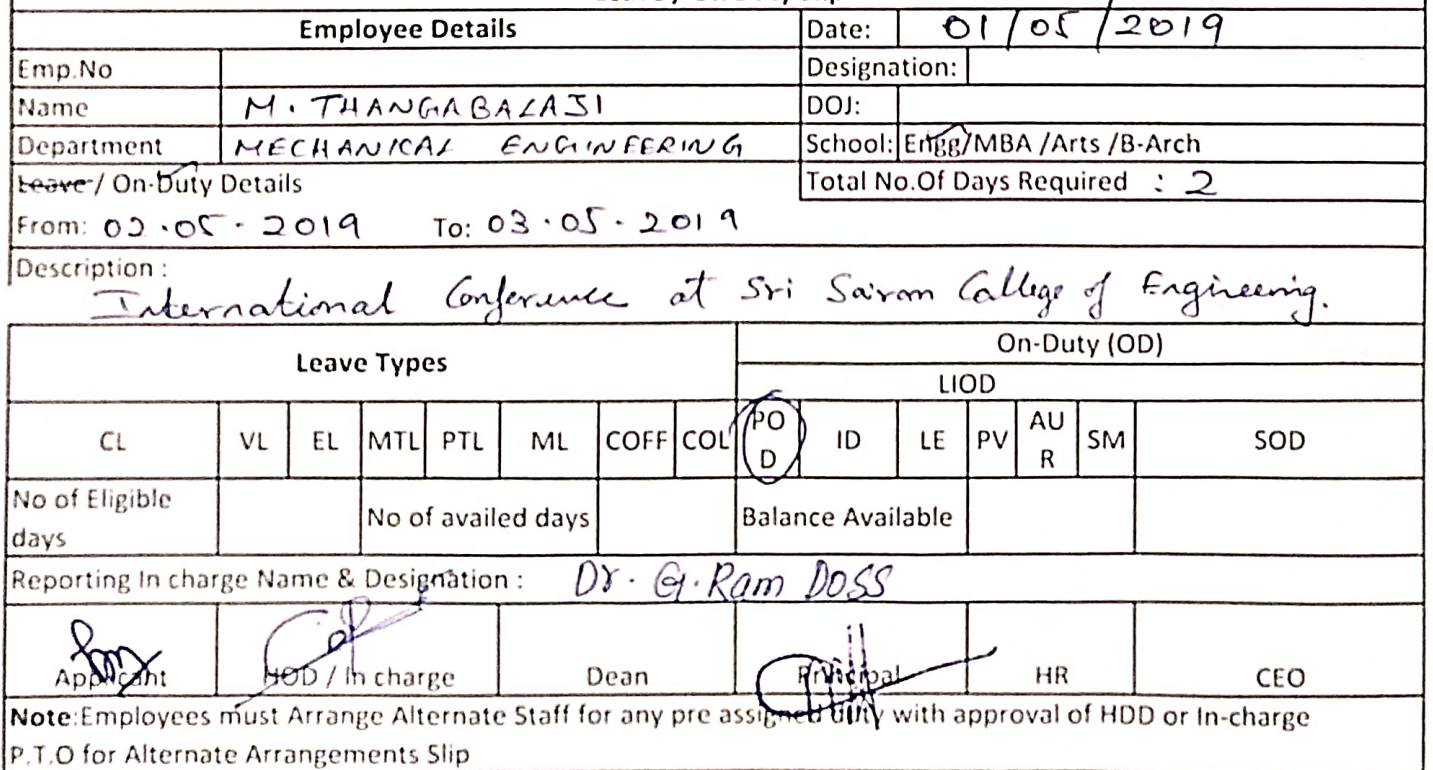 Employee Details Date: 01/05/2019
Emp.No Designation:
Name M. THANGABALAJI DOJ:
Department MECHANICAL ENGINEERING School: Engg/MBA /Arts /B-Arch
Leave / On-Duty Details Total No.Of Days Required : 2
From: 02.05.2019 To: 03.05.2019
Description :
International Conference at Sri Sairam College of Engineering.
Leave Types On-Duty (OD)
LIOD
CL VL EL MTL PTL ML COFF COL POD ID LE PV AUR SM SOD
No of Eligible days No of availed days Balance Available
Reporting In charge Name & Designation : Dr. G. Ram DOSS
Applicant HOD / In charge Dean Principal HR CEO
Note:Employees must Arrange Alternate Staff for any pre assigned duty with approval of HDD or In-charge
P.T.O for Alternate Arrangements Slip